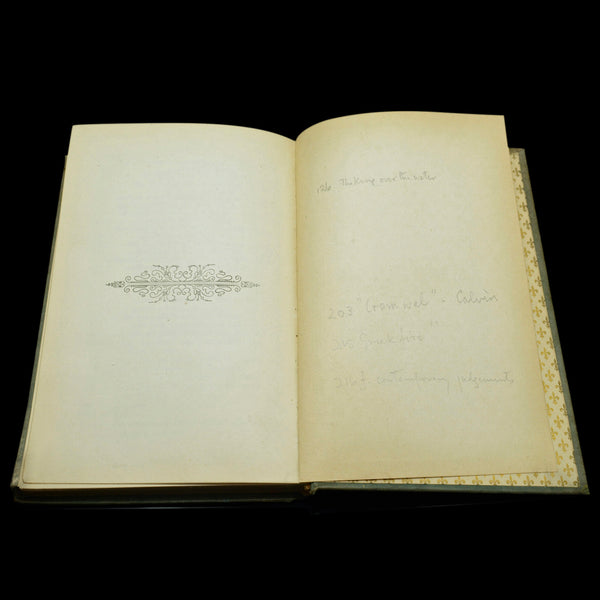 126 The King over the water
203 "Cromwel" - Calvin
216 f. contemporary judgements